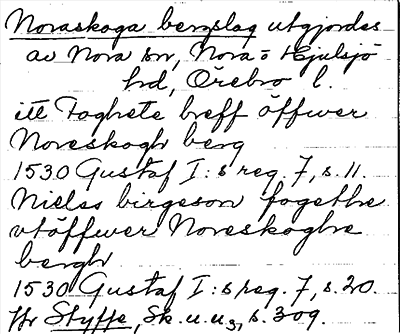 Noraskoga bergslag utgjordes
av Nora sn, Nora o Hjulsjö
hd, Örebro l.
itt Foghete breff öffwer
Noreskogh berg
1530 Gustaf I:s reg. 7, s. 11.
Nielss birgeson fogethe
vtöffwer Noreskoghe
bergh
1530 Gustaf I:s reg. 7, s. 20.
Jfr Styffe, Sk. u. u. 3, s. 309.